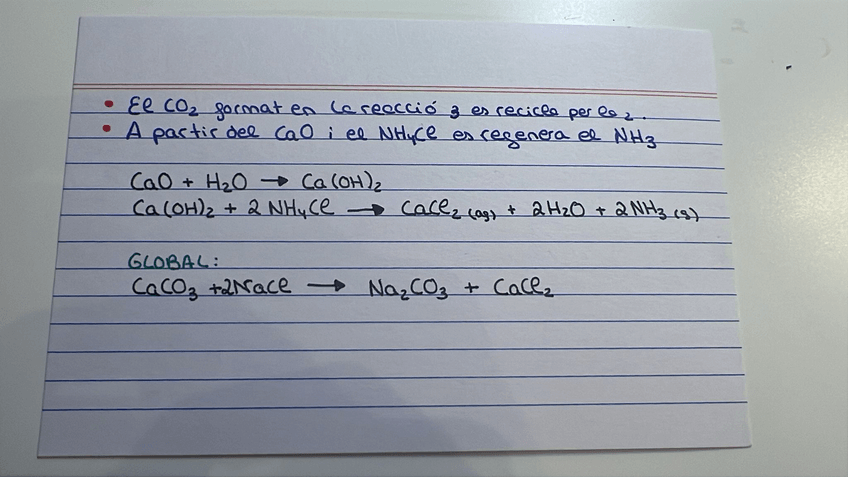 • El CO₂ format en la reacció 3 es recicla per la 2.
• A partir del CaO i el NH₄Cl es regenera el NH₃
CaO + H₂O → Ca(OH)₂
Ca(OH)₂ + 2 NH₄Cl → CaCl₂ (aq) + 2H₂O + 2NH₃ (g)
GLOBAL:
CaCO₃ + 2NaCl → Na₂CO₃ + CaCl₂